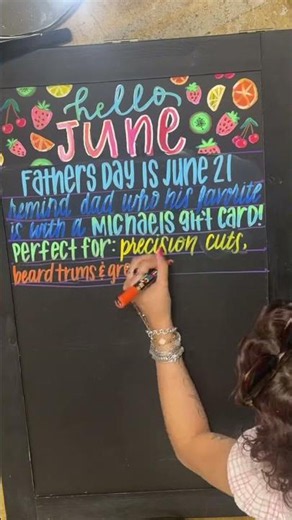 hello
JUNE
FATHERS DAY IS JUNE 21
remind dad who his favorite
is with a MICHAELS GIFT CARD!
Perfect for: precision cuts,
beard trims & gr